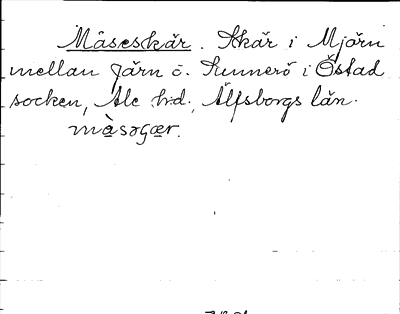 Måseskär. Skär i Mjörn
mellan Järn o. Kunnerö i Östad
socken, Ale h:d, Älfsborgs län.
màsəgær.